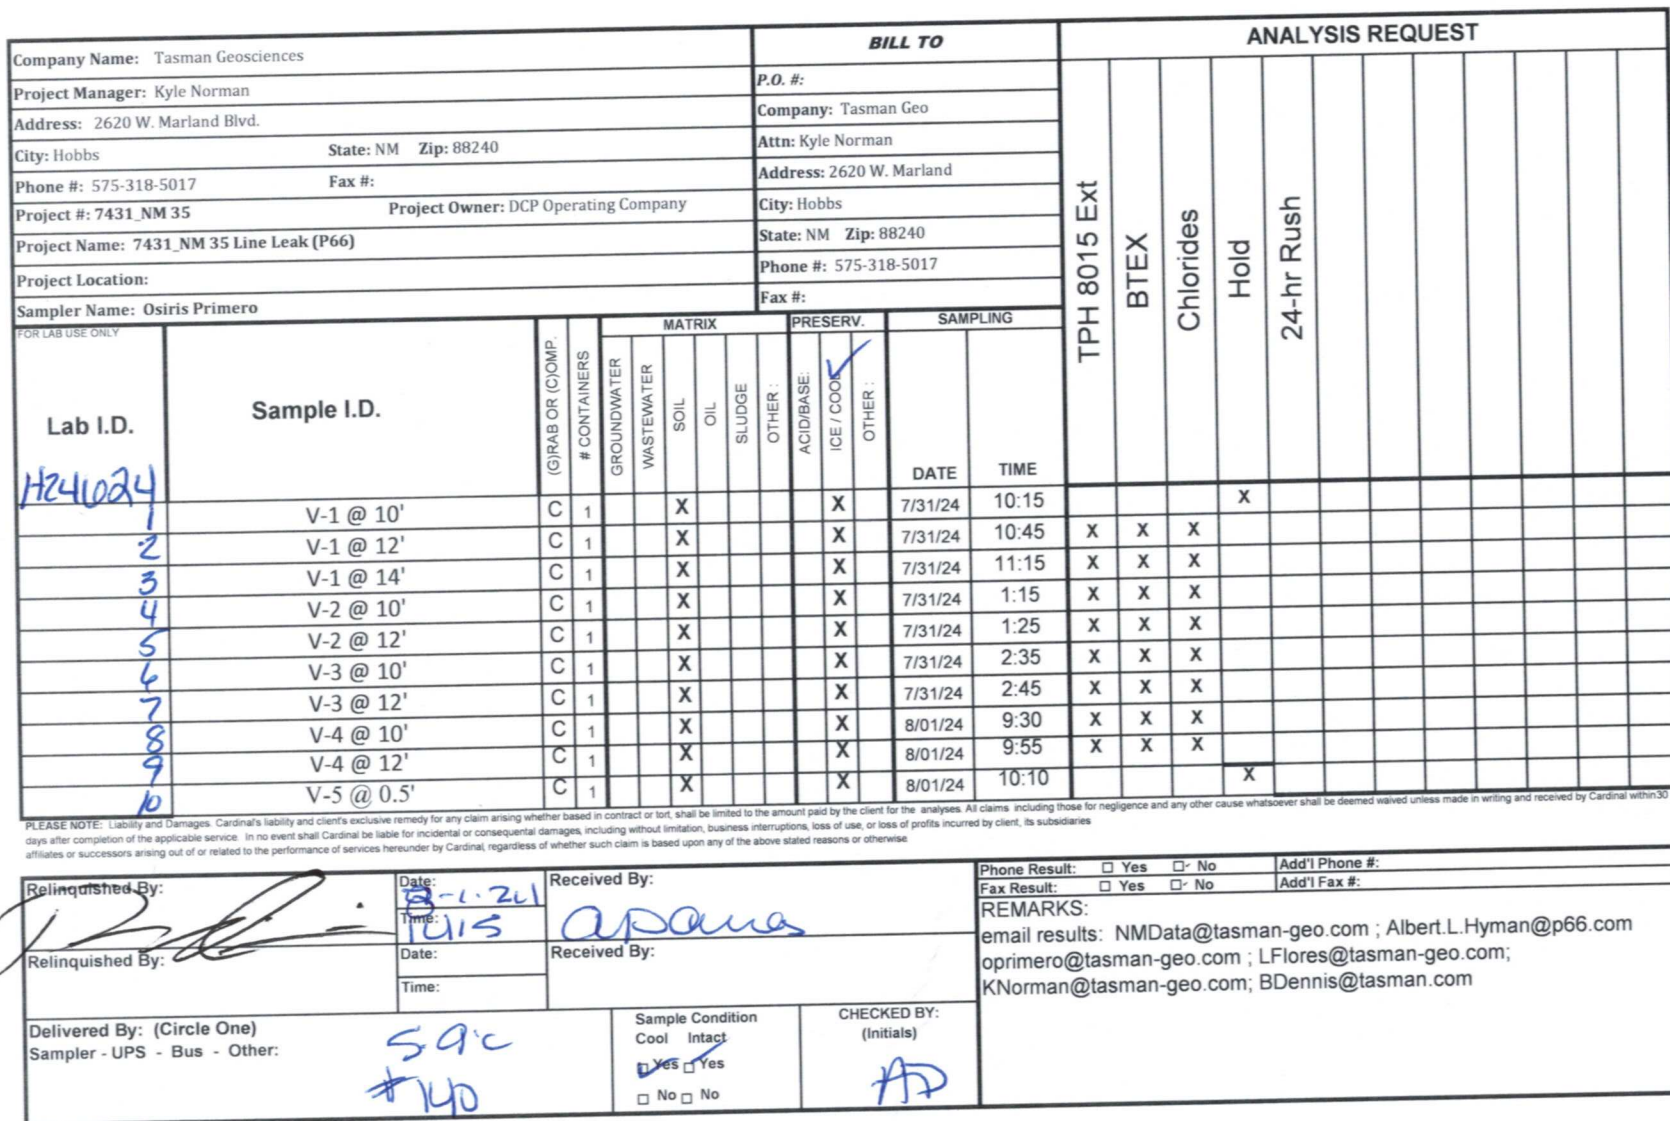 BILL TO
ANALYSIS REQUEST
Company Name: Tasman Geosciences
Project Manager: Kyle Norman
Address: 2620 W. Marland Blvd.
City: Hobbs State: NM Zip: 88240
Phone #: 575-318-5017 Fax #:
Project #: 7431_NM 35 Project Owner: DCP Operating Company
Project Name: 7431_NM 35 Line Leak (P66)
Project Location:
Sampler Name: Osiris Primero
P.O. #:
Company: Tasman Geo
Attn: Kyle Norman
Address: 2620 W. Marland
City: Hobbs
State: NM Zip: 88240
Phone #: 575-318-5017
Fax #:
TPH 8015 Ext
BTEX
Chlorides
Hold
24-hr Rush
FOR LAB USE ONLY
MATRIX PRESERV. SAMPLING
Lab I.D.
Sample I.D.
(G)RAB OR (C)OMP.
# CONTAINERS
GROUNDWATER
WASTEWATER
SOIL
OIL
SLUDGE
OTHER :
ACID/BASE:
ICE / COOL
OTHER :
DATE TIME
H244024
1 V-1 @ 10' C 1 X X 7/31/24 10:15 X
2 V-1 @ 12' C 1 X X 7/31/24 10:45 X X X
3 V-1 @ 14' C 1 X X 7/31/24 11:15 X X X
4 V-2 @ 10' C 1 X X 7/31/24 1:15 X X X
5 V-2 @ 12' C 1 X X 7/31/24 1:25 X X X
6 V-3 @ 10' C 1 X X 7/31/24 2:35 X X X
7 V-3 @ 12' C 1 X X 7/31/24 2:45 X X X
8 V-4 @ 10' C 1 X X 8/01/24 9:30 X X X
9 V-4 @ 12' C 1 X X 8/01/24 9:55 X X X
10 V-5 @ 0.5' C 1 X X 8/01/24 10:10 X
PLEASE NOTE: Liability and Damages. Cardinal's liability and client's exclusive remedy for any claim arising whether based in contract or tort, shall be limited to the amount paid by the client for the analyses. All claims including those for negligence and any other cause whatsoever shall be deemed waived unless made in writing and received by Cardinal within30
days after completion of the applicable service. In no event shall Cardinal be liable for incidental or consequental damages, including without limitation, business interruptions, loss of use, or loss of profits incurred by client, its subsidiaries
affiliates or successors arising out of or related to the performance of services hereunder by Cardinal, regardless of whether such claim is based upon any of the above stated reasons or otherwise
Relinquished By:
Date: 8-1-24
Time: 1415
Received By:
Relinquished By:
Date:
Time:
Received By:
Phone Result: Yes No Add'l Phone #:
Fax Result: Yes No Add'l Fax #:
REMARKS:
email results: NMData@tasman-geo.com ; Albert.L.Hyman@p66.com
oprimero@tasman-geo.com ; LFlores@tasman-geo.com;
KNorman@tasman-geo.com; BDennis@tasman.com
Delivered By: (Circle One)
Sampler - UPS - Bus - Other:
5.9°c
#140
Sample Condition
Cool Intact
Yes Yes
No No
CHECKED BY:
(Initials)
AP